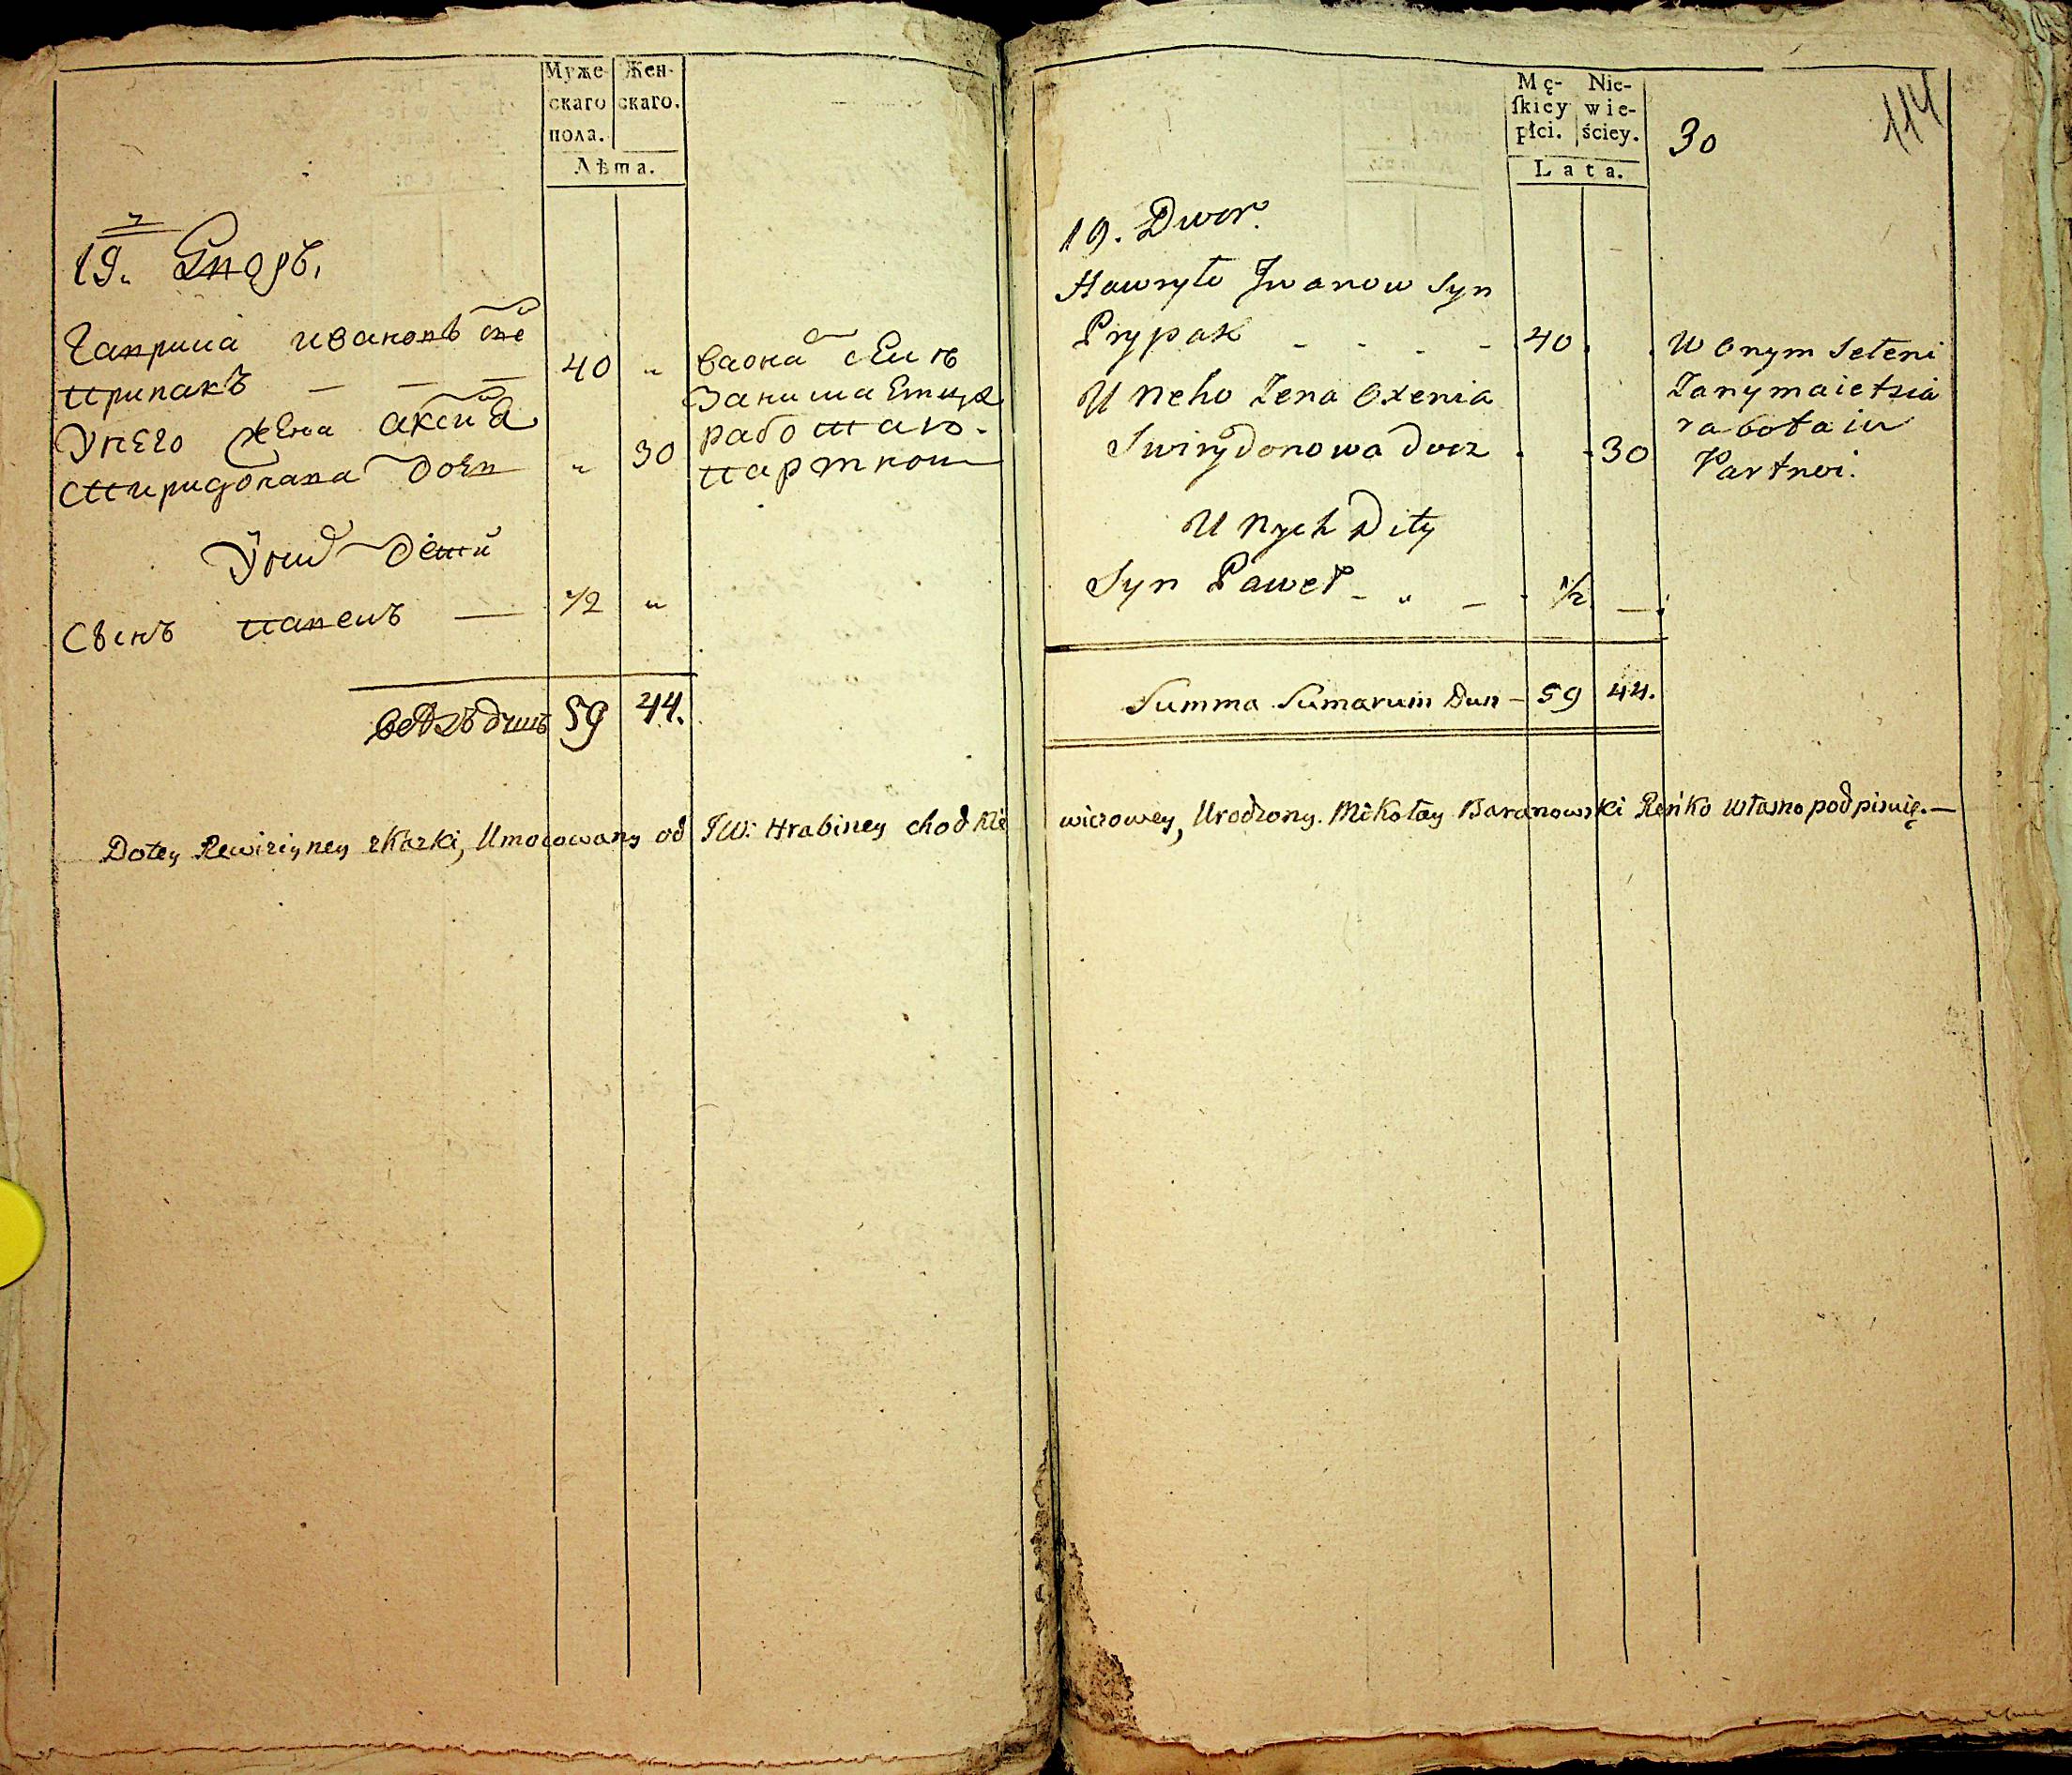 Муже-
скаго
пола.
Жен-
скаго.
Лѣта.
19. Дворъ.
Гаврила Ивановъ снъ
Припакъ — — — 40 „
У него жена Аксинья
Спиридонова дочь „ 30
У нихъ дети
Сынъ Павелъ — 1/2 „
душъ 59 44.
в оном селе
занимается
работаю
партною
Mę-
ſkiey
płci.
Nie-
wie-
ściey.
Lata.
30
114
19. Dwor.
Hawryło Jwanow Syn
Prypak - - - - 40.
U Neho Żena Oxenia
Swirydonowa docz . . 30
U Nych Dity
Syn Paweł - „ - 1/2 —
W Onym Seleni
Zanymaietsia
rabotaiu
Partnoi.
Summa Sumarum Dusz - 59 44.
Dotey Rewizyiney skazki, Umocowany od JW: Hrabiney chodkie wiczowey, Urodzony Mikołay Baranowski Ręńko własno podpisuię.—